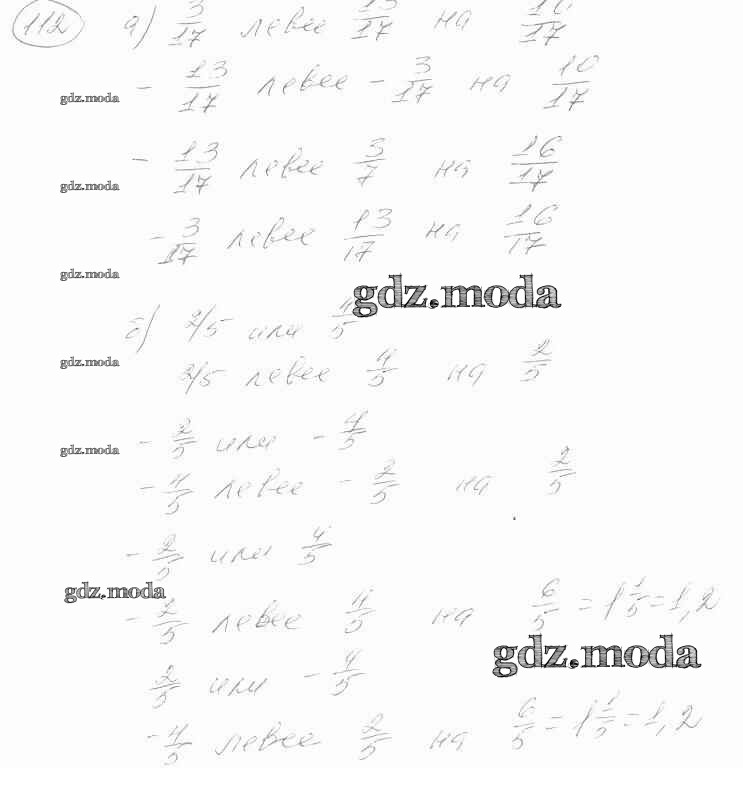 112 а) 3/17 левее 13/17 на 10/17
- 13/17 левее - 3/17 на 10/17
gdz.moda
- 13/17 левее 3/7 на 16/17
gdz.moda
- 3/17 левее 13/17 на 16/17
gdz.moda
gdz.moda
б) 2/5 или 4/5
gdz.moda
2/5 левее 4/5 на 2/5
- 2/5 или - 4/5
gdz.moda
- 4/5 левее - 2/5 на 2/5
- 2/5 или 4/5
gdz.moda
- 2/5 левее 4/5 на 6/5 = 1 1/5 = 1,2
gdz.moda
2/5 или - 4/5
- 4/5 левее 2/5 на 6/5 = 1 1/5 = 1,2